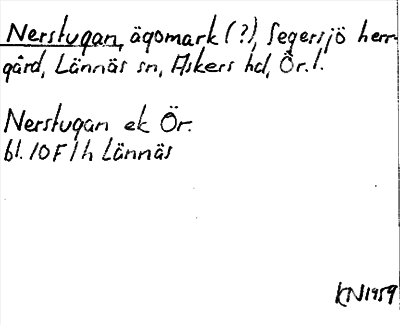 Nerstugan, ägomark (?), Segersjö herr-
gård, Lännäs sn, Askers hd, Ör. l.
Nerstugan ek Ör.
bl. 10F1h Lännäs
KN1959